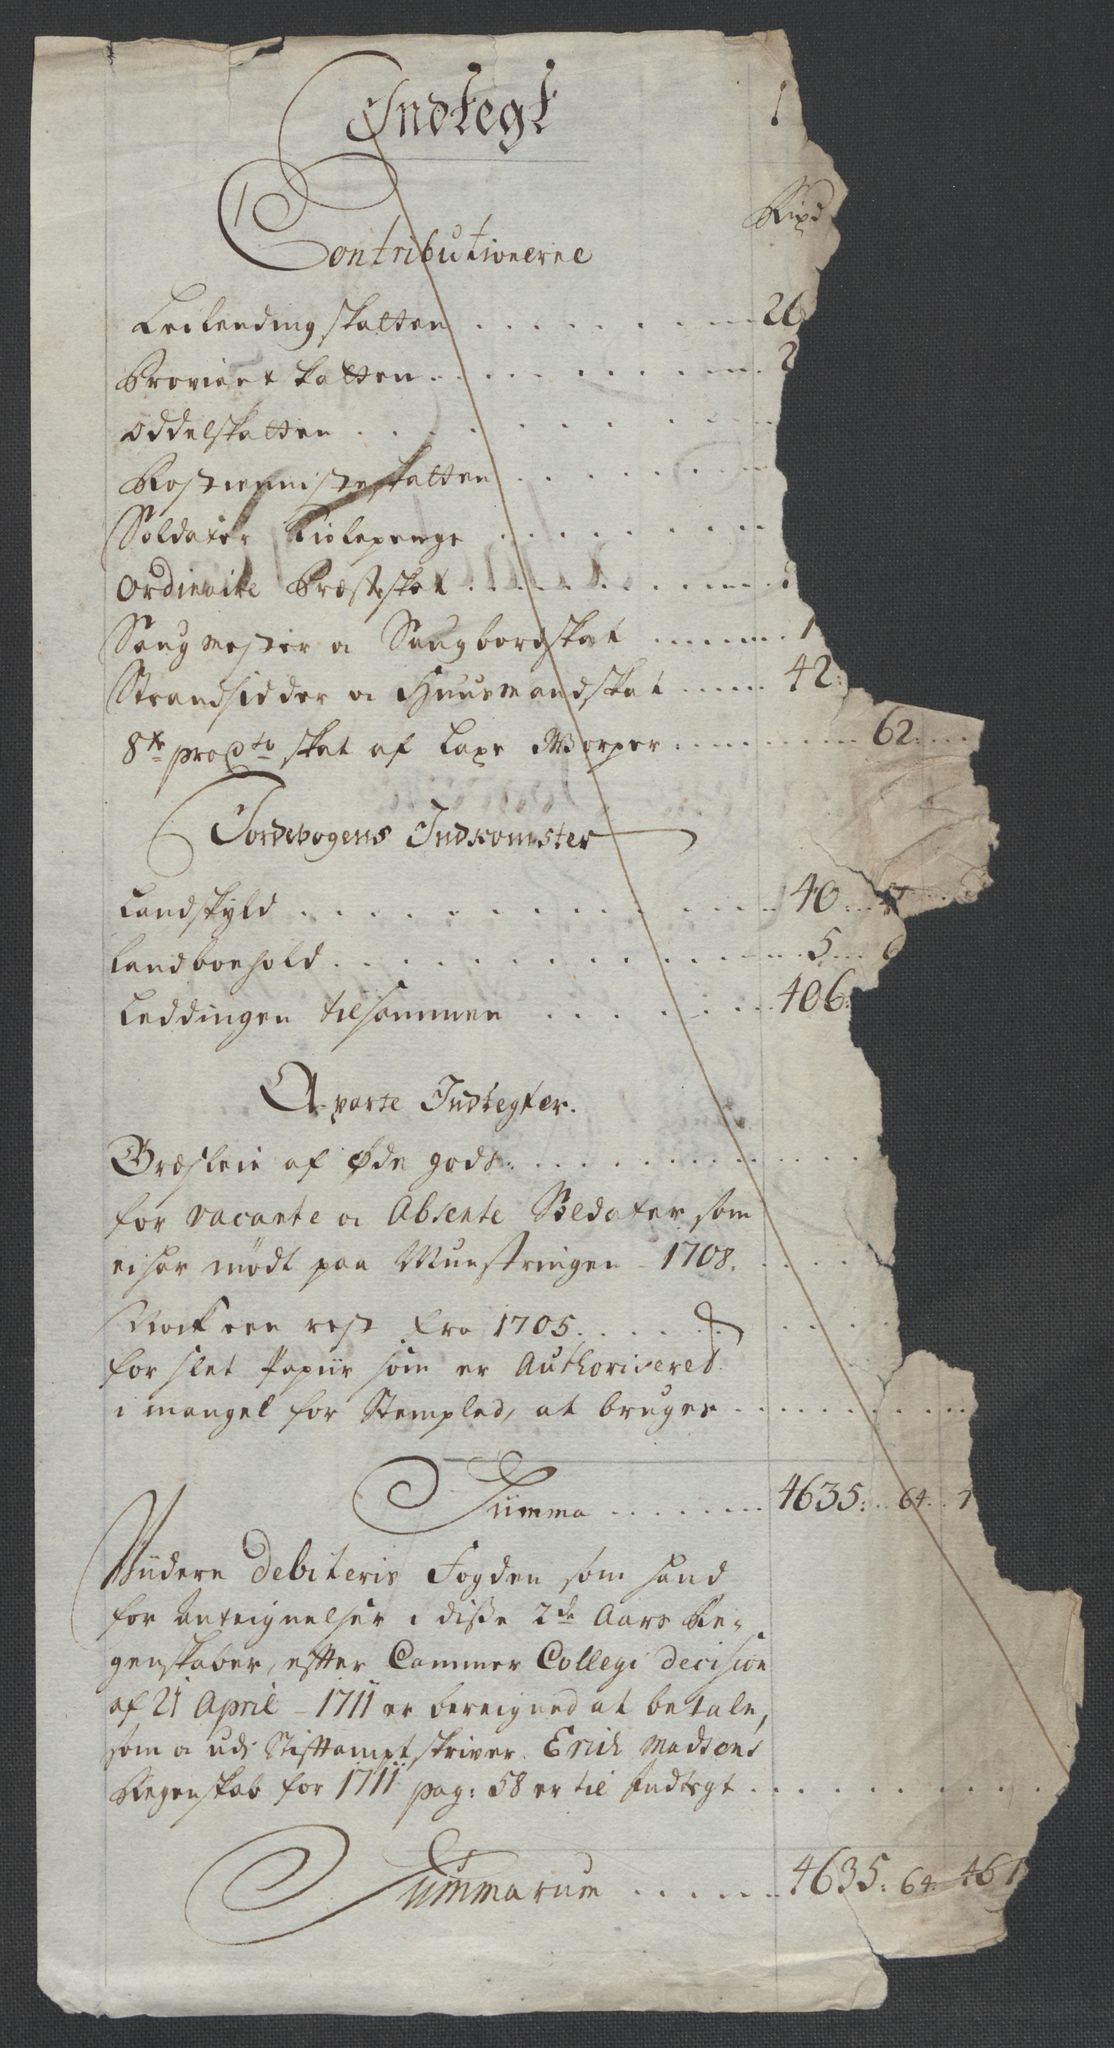 Indtegt 1
Rixd
Contributionerne
Leilending skatten . . . . . . . . 26
Proviant skatten . . . . . . . . 2
Oddelskatten . . . . . . . .
Rostienniste skatten . . . . . .
Soldater Kiolepenge . . . . . . .
Ordinaire Præsteskat . . . . . . . .
Saugmester og Saugbordskat . . . . . 1
Strandsidder og Huusmandskat . . . . 42:
8te pro Cto skat af Laxe Worper . . . . . . 62. . .
Jordebogens Indkomster
Landskyld . . . . . . . . . . 40. . .
Landbonhold . . . . . . . . . . 5. . 6
Leddingen tilsammen . . . . . . 406:
Aparte Indtegter.
Græsleie af Øde gods. . . . . . . . .
for vacante og Absente Soldater, som
ei har mødt paa Munstringen 1708. . . . .
Nock een rest fra 1705. . . . . . . .
for slet Papiir som er Authoriseret
i mangel for Stempled, at bruges . . . . . . .
Summa . . . . . . 4635. . 64. . 1
Viidere Debiteris Fogden som hand
for Anteignelser i disse 2de Aars Re-
genskaber, efter Cammer Collegi decision
af 21 April 1711 er bereigned at betale,
som og udi Stiftamptskriver Erich Madsens
Regenskab for 1711 pag: 58 er til Indtegt . . . . . . .
Summarum . . . . . 4635. 64. 461